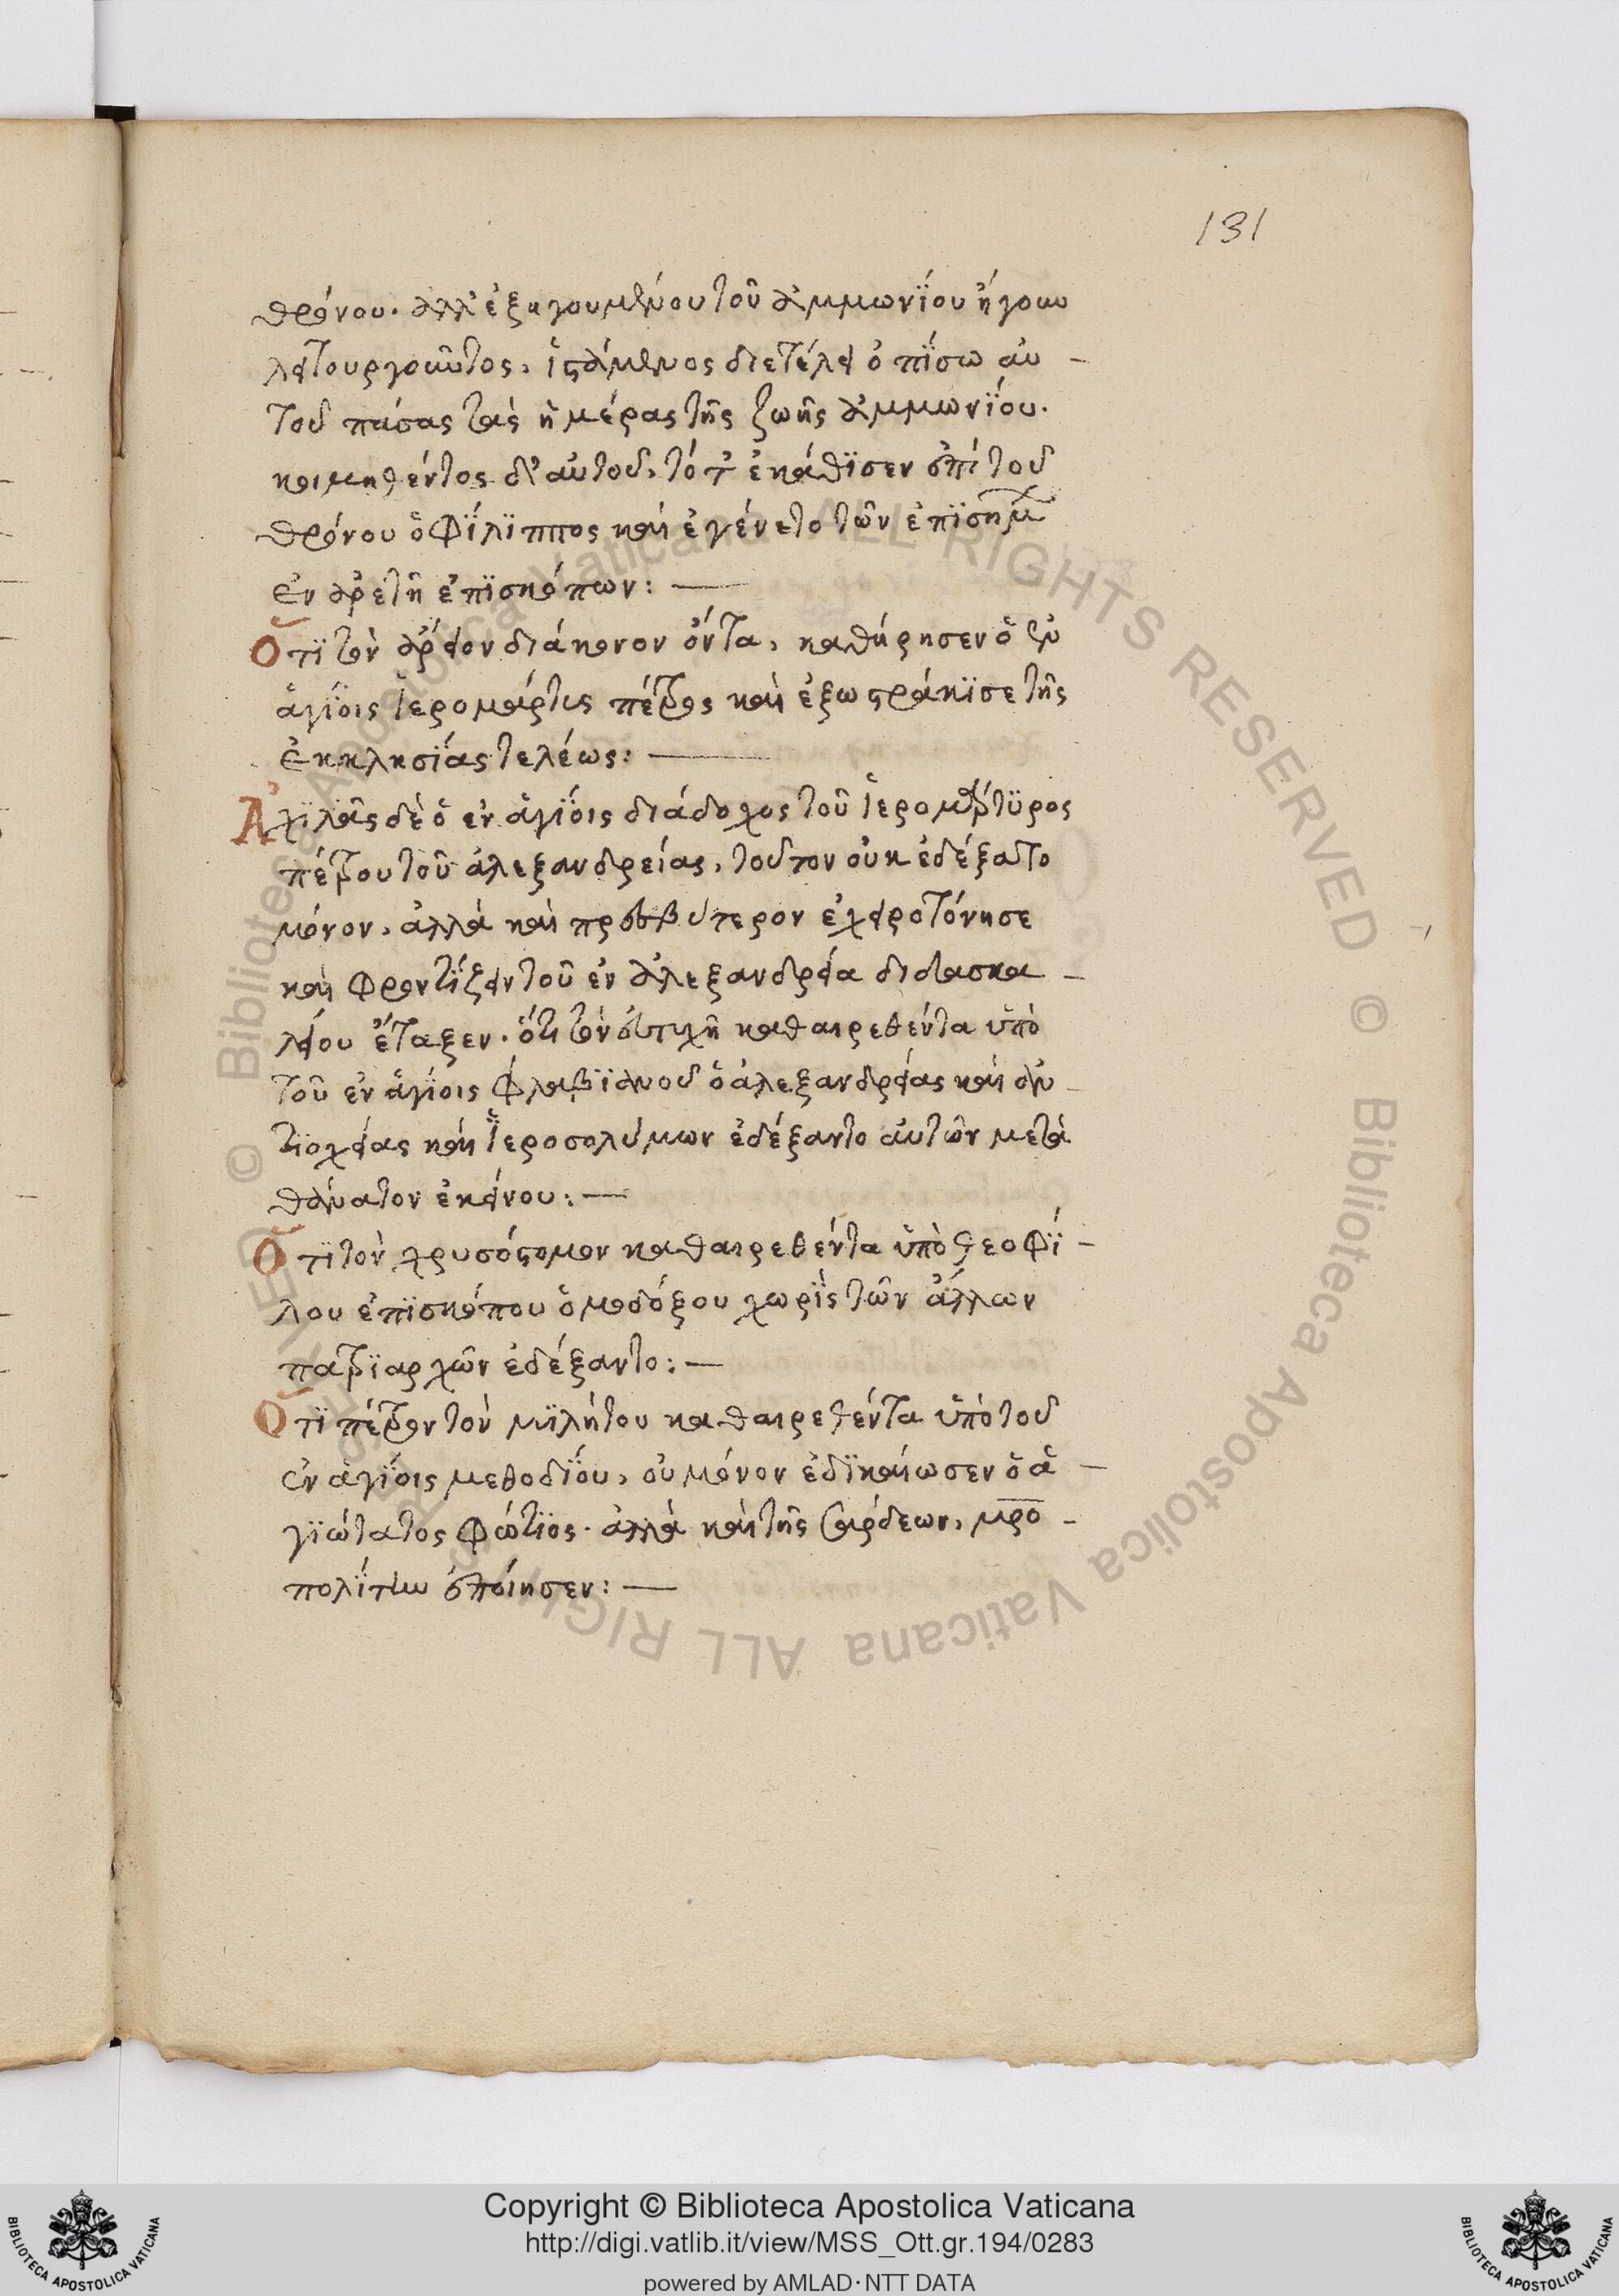 131
θρόνου. ἀλλ' ἐξηγουμένου τοῦ ἀμμωνΐου ἤγουν
λειτουργοῦντος, ἱστάμενος διετέλει ὀπΐσω αὐ-
τοῦ πάσας τὰς ἡμέρας τῆς ζωῆς ἀμμωνΐου.
κοιμηθέντος δ' αὐτοῦ, τότε ἐκάθϊσεν ἐπὶ τοῦ
θρόνου ὁ Φΐλϊππος καὶ ἐγένετο τῶν ἐπϊσημ
ἐν ἀρετῆ ἐπϊσκόπων: —
Ὅτϊ τὸν ἄρειον διάκονον ὄντα, καθήρησεν ὁ ἐν
ἁγΐοις ἱερομάρτυς πέτρος καὶ ἐξωστράκϊσε τῆς
ἐκκλησΐας τελέως: —
Ἀχϊλᾶς δὲ ὁ ἐν ἁγΐοις διάδοχος τοῦ ἱερομάρτϋρος
πέτρου τοῦ ἀλεξανδρείας, τοῦτον οὐκ ἐδέξατο
μόνον, ἀλλὰ καὶ πρεσβύτερον ἐχειροτόνησε
καὶ φροντΐζειν τοῦ ἐν ἀλεξανδρεία διδασκα-
λείου ἔταξεν. ὅτι τὸν εὐτυχῆ καθαιρεθέντα ὑπὸ
τοῦ ἐν ἁγΐοις Φλαβϊανοῦ ὁ ἀλεξανδρείας καὶ ἀν-
τϊοχείας καὶ Ἱεροσολύμων ἐδέξαντο αὐτῶν μετὰ
θάνατον ἐκείνου: —
Ὅτϊ τὸν χρυσόστομον καθαιρεθέντα ὑπὸ θεοΦΐ-
λου ἐπϊσκόπου ὁμοδόξου χωρὶς τῶν ἄλλων
πατρϊαρχῶν ἐδέξαντο: —
Ὅτϊ πέτρον τὸν μϊλήτου καθαιρεθέντα ὑπὸ τοῦ
ἐν ἁγΐοις μεθοδΐου, οὐ μόνον ἐδϊκαίωσεν ὁ ἁ-
γϊώτατος Φώτϊος. ἀλλὰ καὶ τῆς σάρδεων, μρο-
πολΐτην ἐποίησεν: —
© Biblioteca Apostolica Vaticana ALL RIGHTS RESERVED © Biblioteca Apostolica Vaticana ALL RIGHTS RESERVED
Copyright © Biblioteca Apostolica Vaticana
http://digi.vatlib.it/view/MSS_Ott.gr.194/0283
powered by AMLAD·NTT DATA
BIBLIOTECA APOSTOLICA VATICANA
BIBLIOTECA APOSTOLICA VATICANA